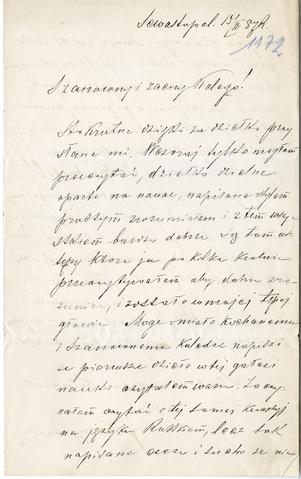 Sewastopol 15/II 87 r.
1172
Szanowny i zacny Kolego!
Stokrotne dzięki za dziełko przy
słane mi. Wczoraj tylko mogłem
przeczytać, dziełko dzielne
oparte na nauce, napisane stylem
prostym zrozumiałem i z tem wszy
stkiem bardzo dobrze. Są tam ustę
py które ja po kilka krotnie
przeczytywałem aby dobrze zro
zumieć, i zostało w mojej tępej
głowie. Mogę śmiało kochanemu
i Szanownemu Koledze napisać
że pierwsze dzieło w tej gałęzi
nauki czytałem wasze. Zaczy
nałem czytać o tej samej kwestyi
na języku Ruskiem, lecz tak
napisane i sucho że nie